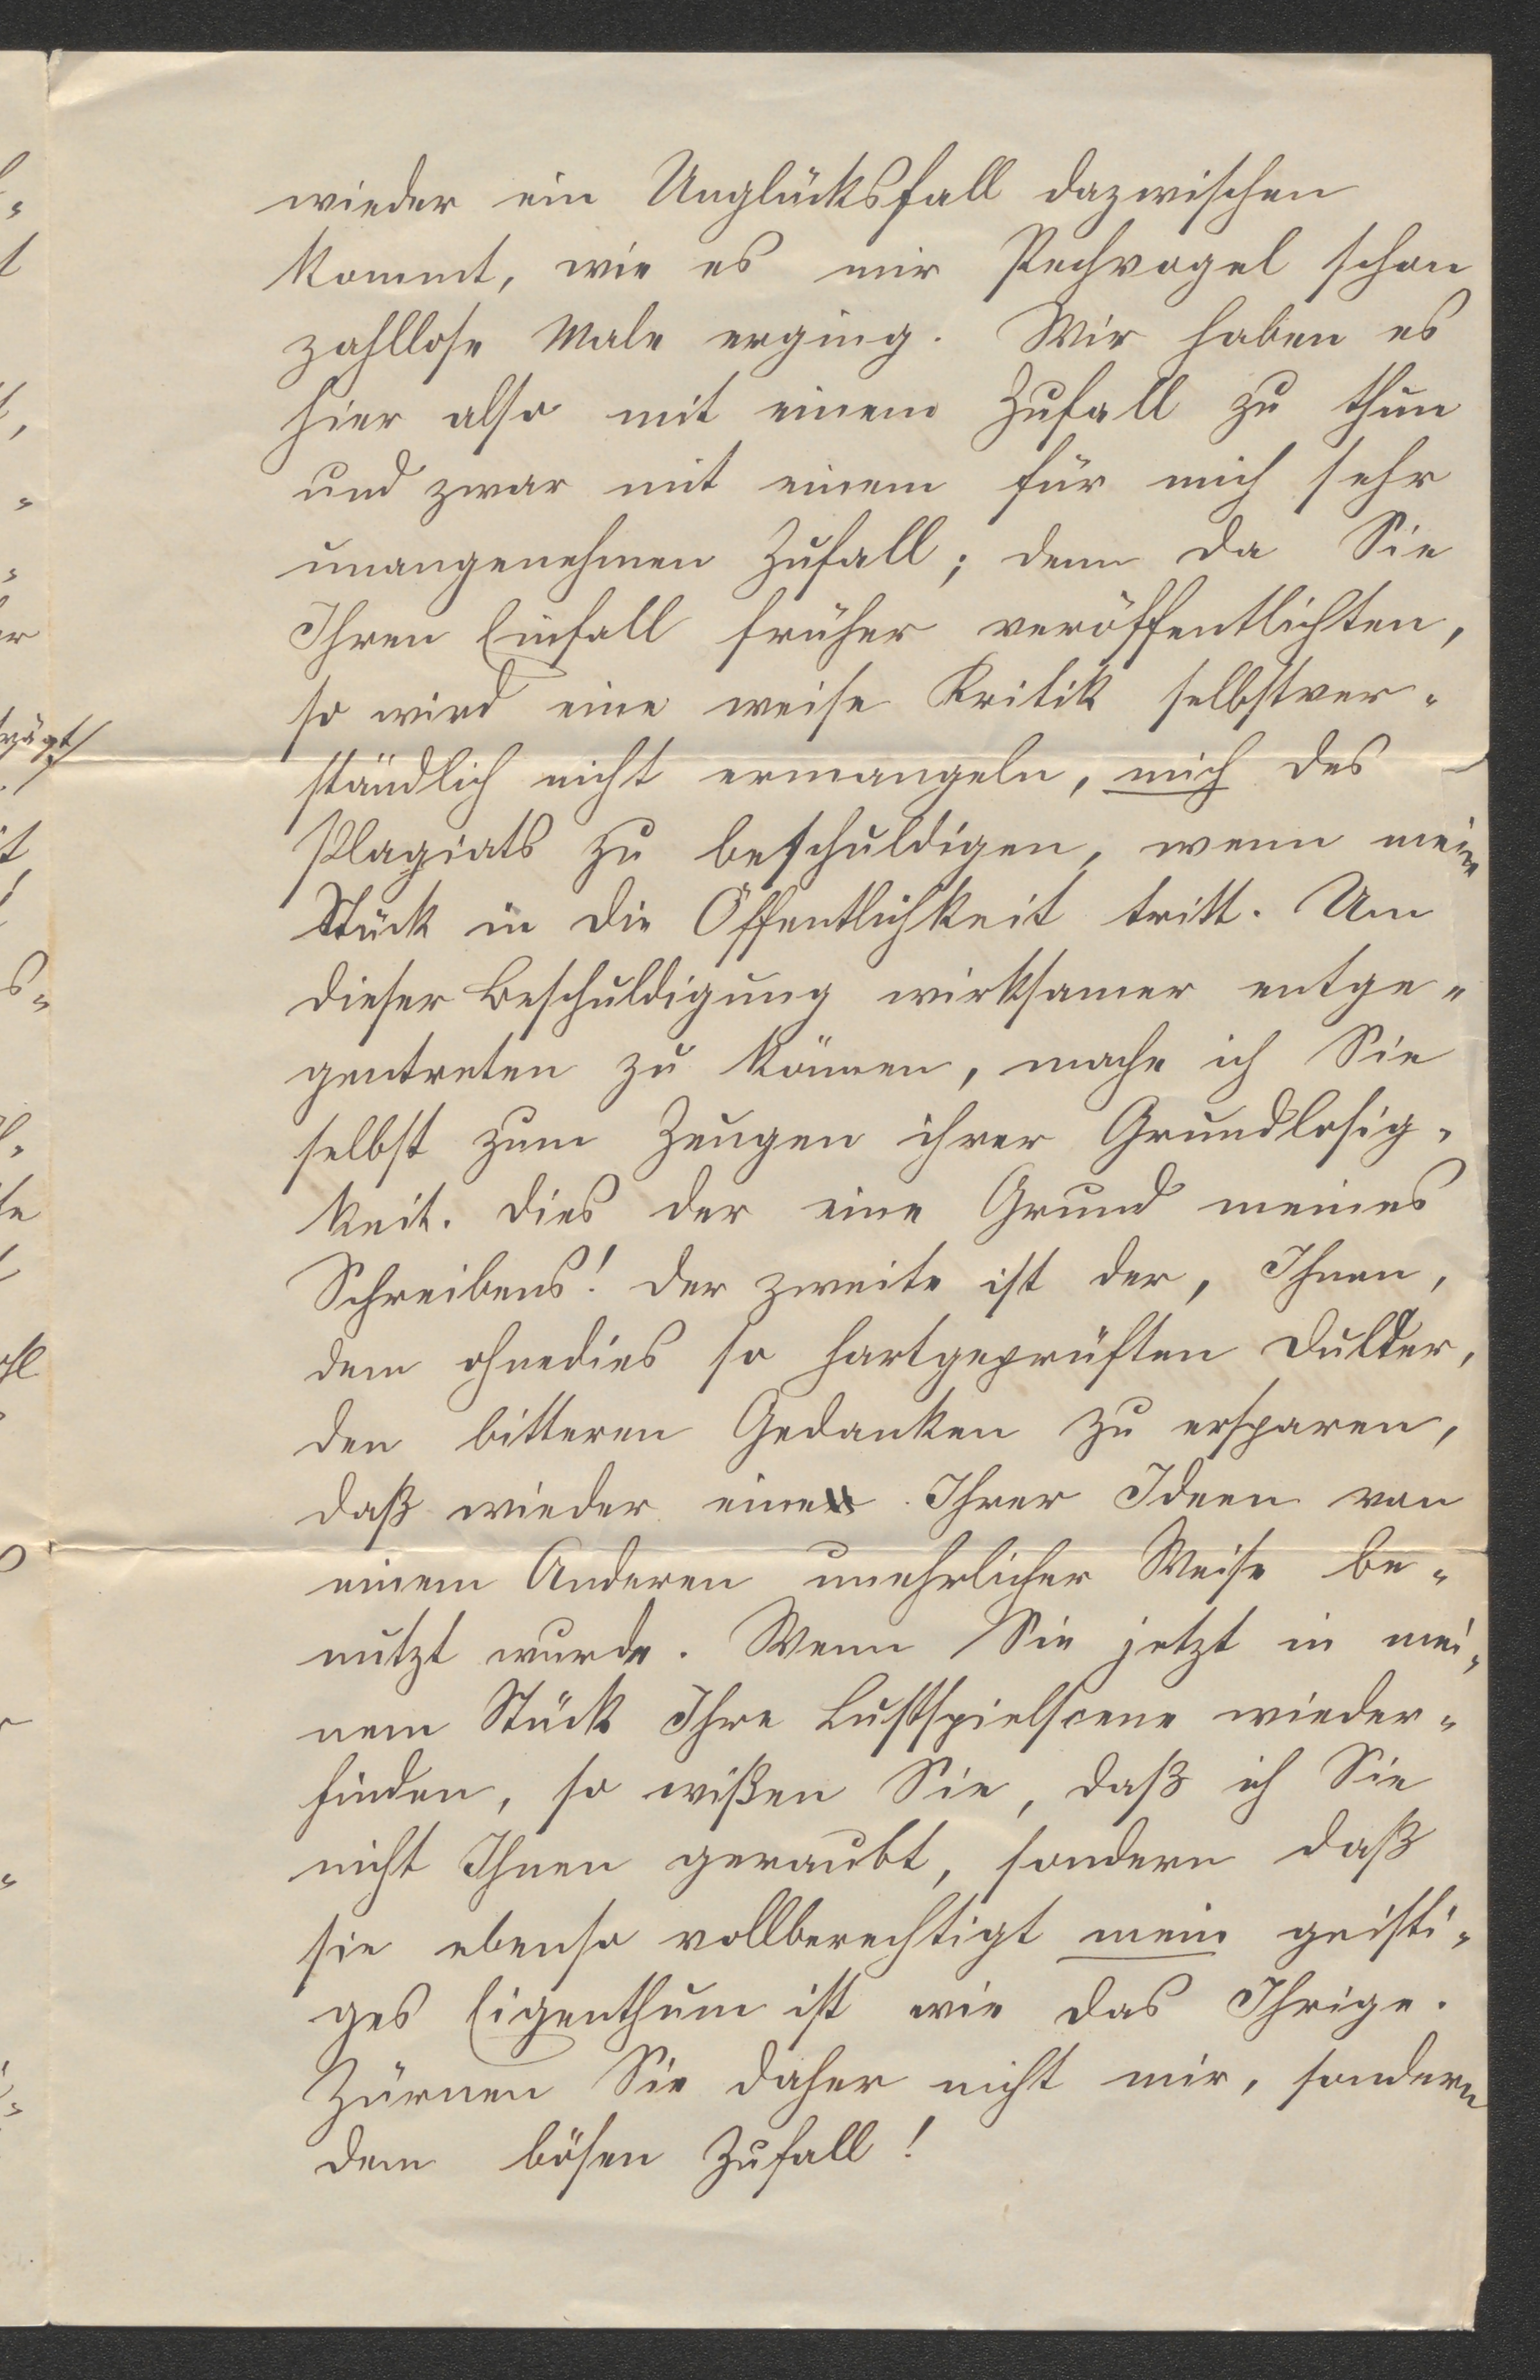 wieder ein Unglücksfall dazwischen
kommt, wie es mir Pechvogel schon
zahllose Male erging. Wir haben es
hier also mit einem Zufall zu thun
und zwar mit einem für mich sehr
unangenehmen Zufall; denn da Sie
Ihren Einfall früher veröffentlichten,
so wird eine weise Kritik selbstver-
ständlich nicht ermangeln, mich des
Plagiats zu beschuldigen, wenn mein
Stück in die Öffentlichkeit tritt. Um
dieser Beschuldigung wirksamer entge-
gentreten zu können, mache ich Sie
selbst zum Zeugen ihrer Grundlosig-
keit. Dies der eine Grund meines
Schreibens! Der zweite ist der, Ihnen,
dem ohnedies so hartgeprüften Dulder,
den bitteren Gedanken zu ersparen,
daß wieder eine Ihrer Ideen von
einem Anderen unehrlicher Weise be-
nutzt wurde. Wenn Sie jetzt in mei-
nem Stück Ihre Lustspielscene wieder-
finden, so wißen Sie, daß ich Sie
nicht Ihnen geraubt, sondern daß
sie ebenso vollberechtigt mein geisti-
ges Eigenthum ist wie das Ihrige.
Zürnen Sie daher nicht mir, sondern
dem bösen Zufall!